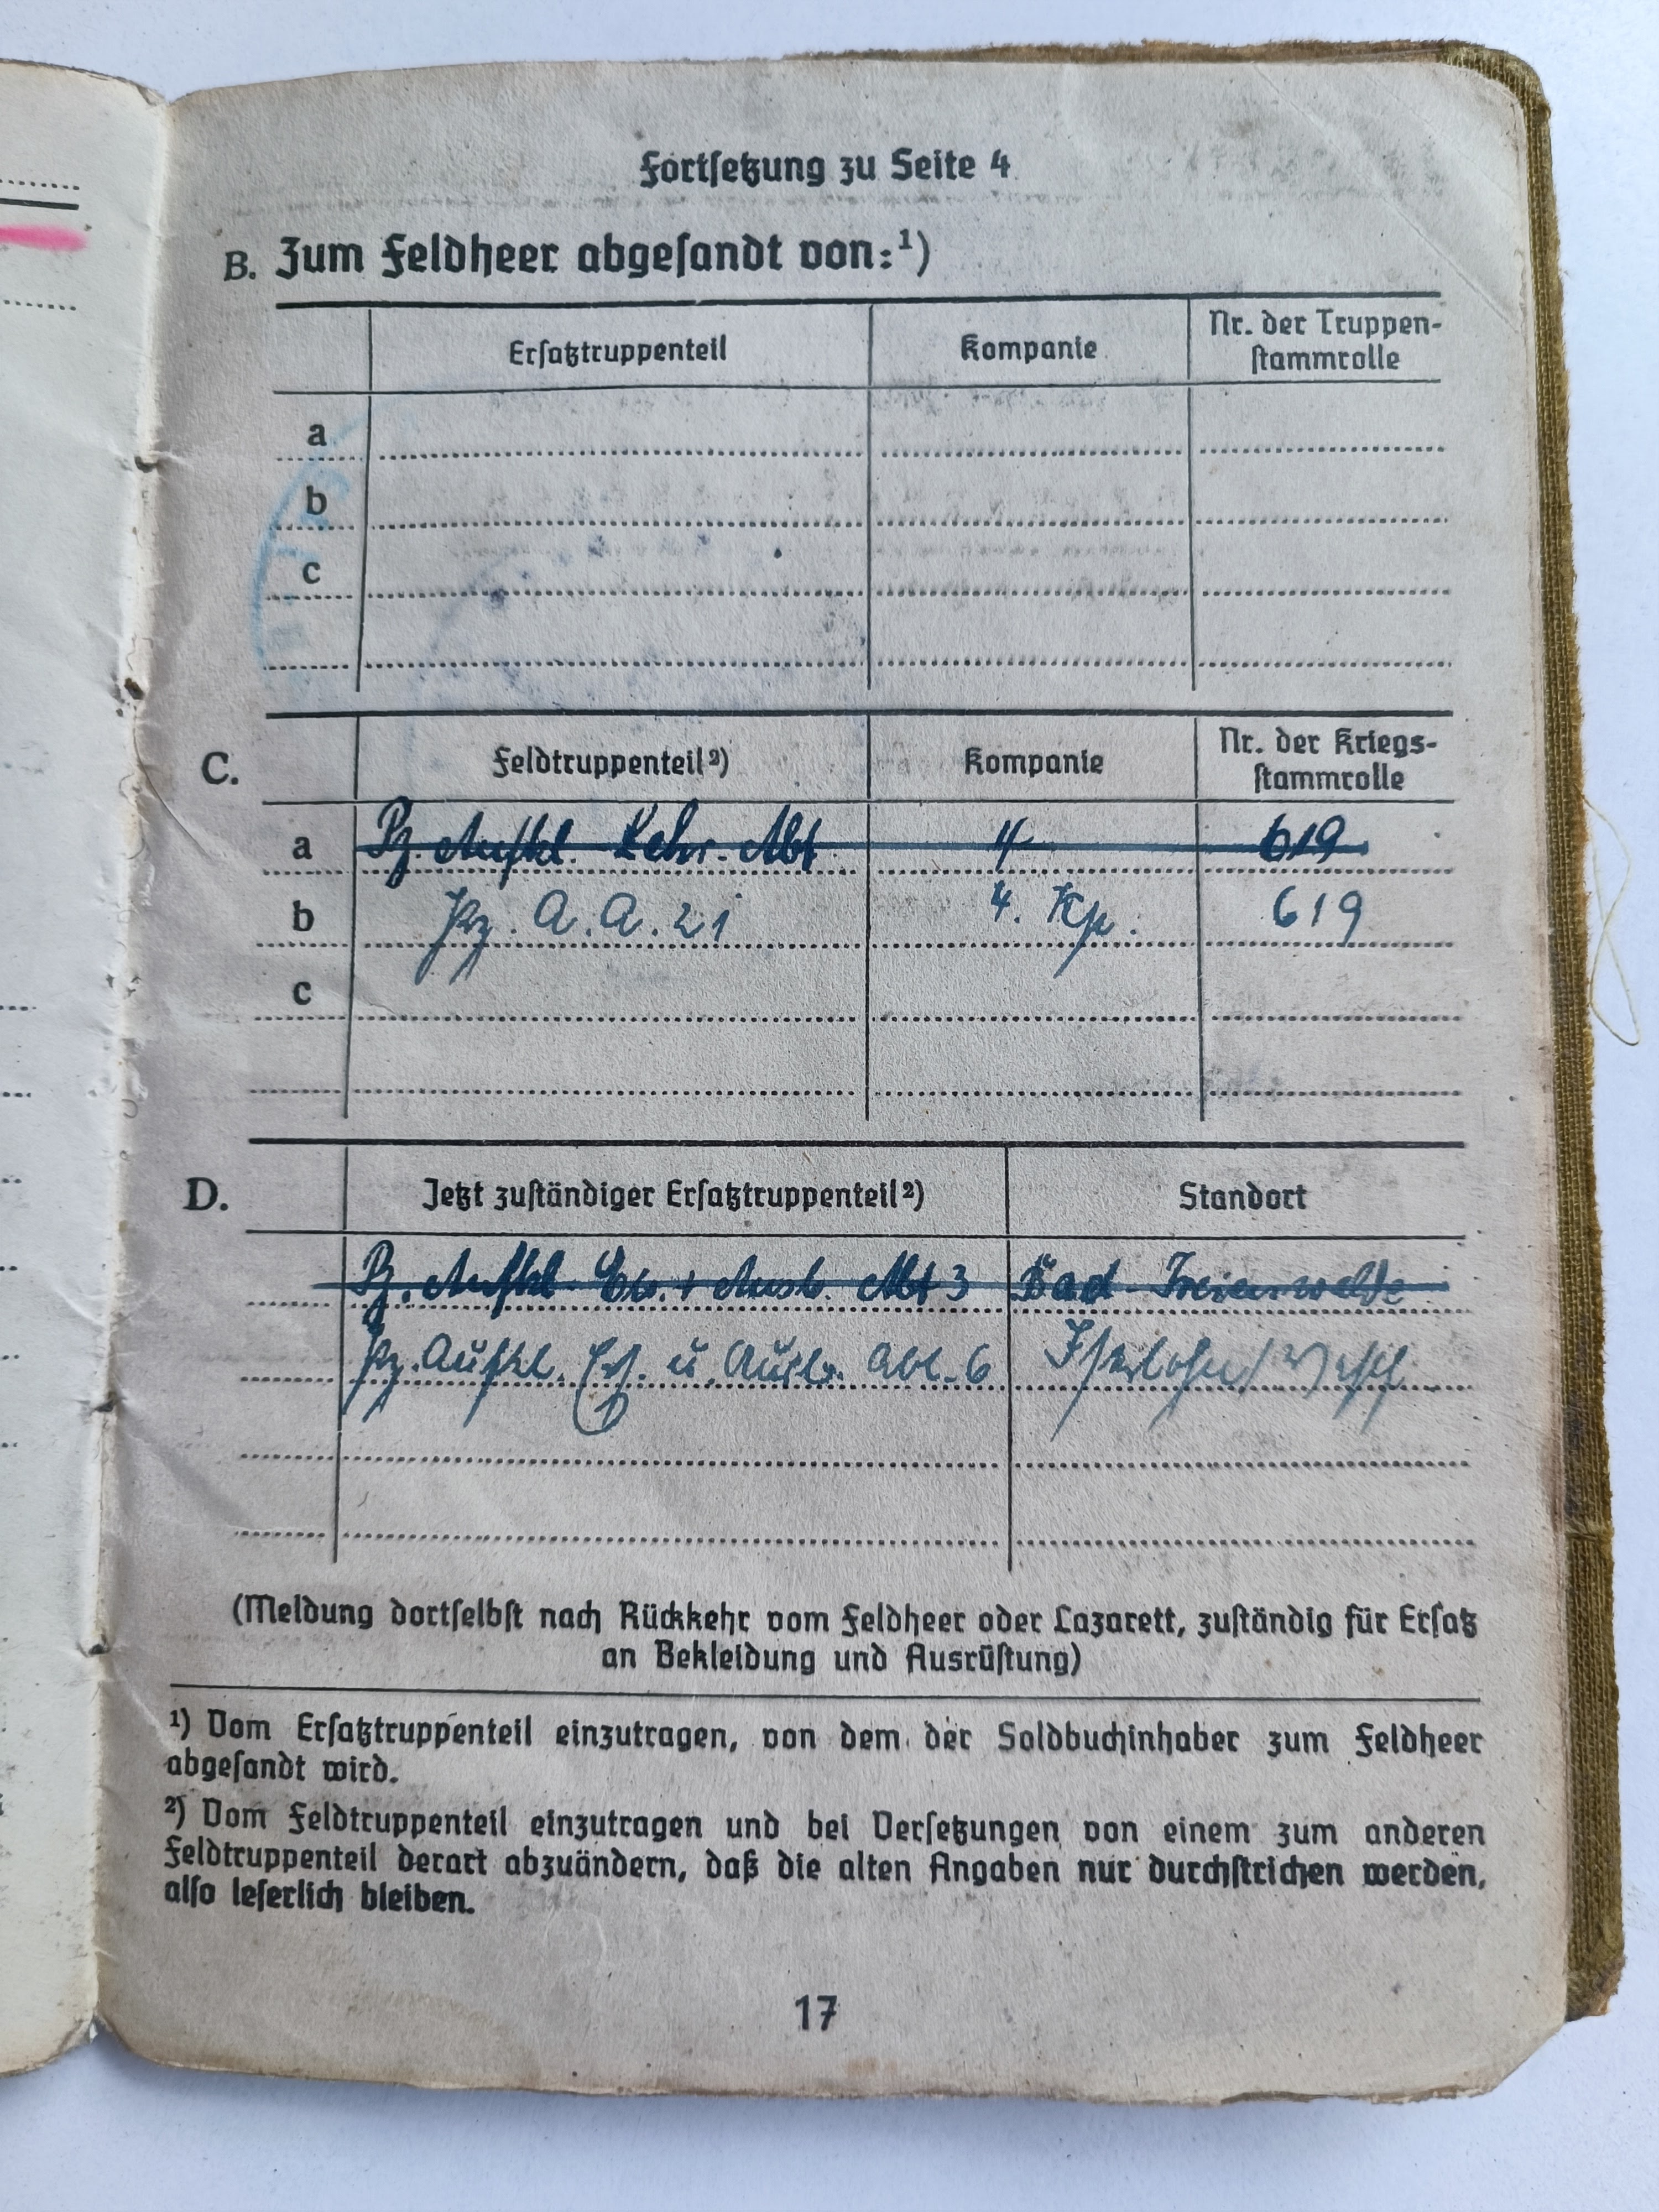 Fortsetzung zu Seite 4
B. Zum Feldheer abgesandt von:¹)
Ersatztruppenteil Kompanie Nr. der Truppen-
stammrolle
a
b
c
C. Feldtruppenteil²) Kompanie Nr. der Kriegs-
stammrolle
a Pz. Aufkl. Lehr. Abt 4 619
b Pz. A. A. 21 4. Kp. 619
c
D. Jetzt zuständiger Ersatztruppenteil²) Standort
Pz. Aufkl. Ers. + Ausb. Abt 3 Bad Freienwalde
Pz. Aufkl. Ers. u. Ausb. Abt. 6 Iserlohn / Westf
(Meldung dortselbst nach Rückkehr vom Feldheer oder Lazarett, zuständig für Ersatz
an Bekleidung und Ausrüstung)
¹) Vom Ersatztruppenteil einzutragen, von dem der Soldbuchinhaber zum Feldheer
abgesandt wird.
²) Vom Feldtruppenteil einzutragen und bei Versetzungen von einem zum anderen
Feldtruppenteil derart abzuändern, daß die alten Angaben nur durchstrichen werden,
also leserlich bleiben.
17